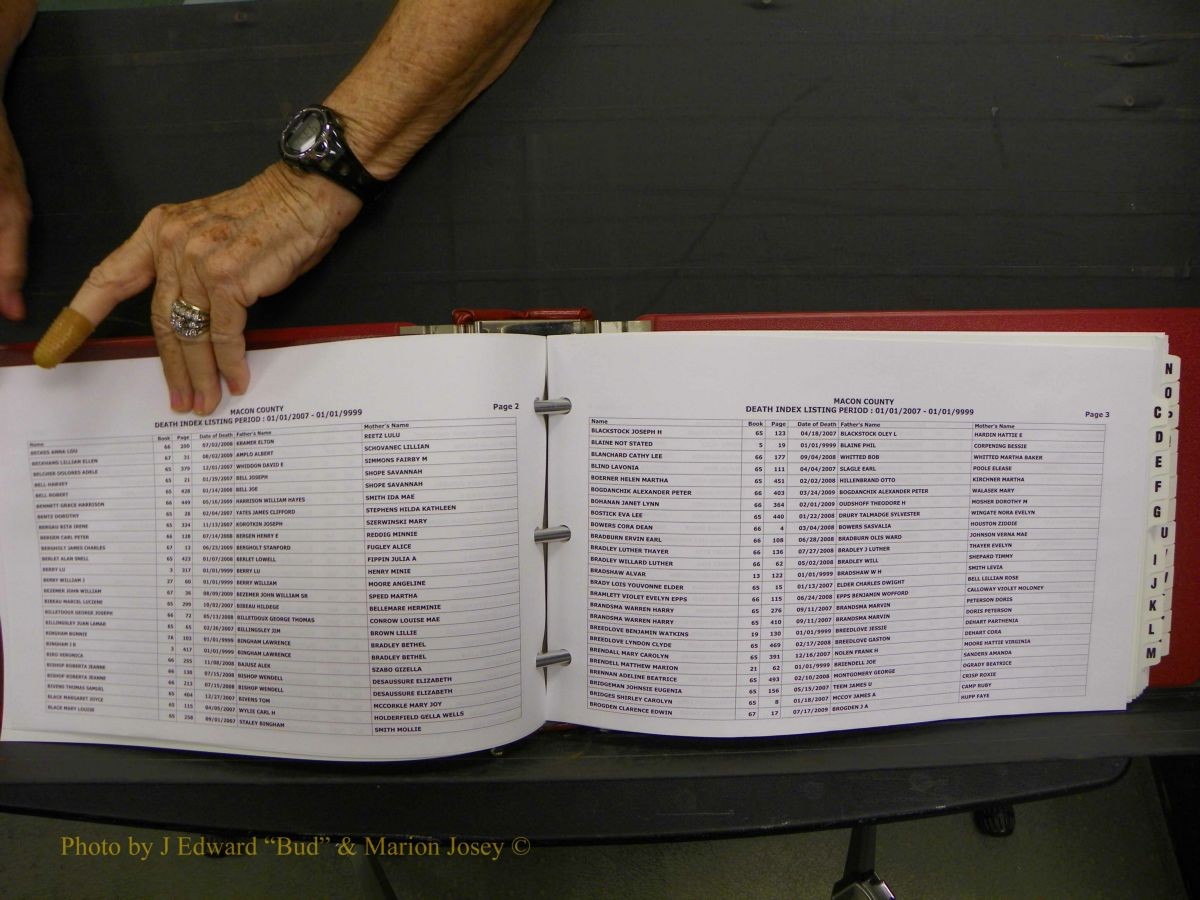 MACON COUNTY
DEATH INDEX LISTING PERIOD : 01/01/2007 - 01/01/9999 Page 2
Name Book Page Date of Death Father's Name Mother's Name
BECKES ANNA LOU 66 200 07/02/2008 KRAMER ELTON REETZ LULU
BECKHAMS LILLIAN ELLEN 67 31 08/02/2009 AMPLO ALBERT SCHOVANEC LILLIAN
BELCHER DOLORES ADELE 65 379 12/01/2007 WHIDDON DAVID E SIMMONS FAIRBY M
BELL HARVEY 65 21 01/29/2007 BELL JOSEPH SHOPE SAVANNAH
BELL ROBERT 65 428 01/14/2008 BELL JOE SHOPE SAVANNAH
BENNETT GRACE HARRISON 66 449 05/16/2009 HARRISON WILLIAM HAYES SMITH IDA MAE
BENTZ DOROTHY 65 28 02/04/2007 YATES JAMES CLIFFORD STEPHENS HILDA KATHLEEN
BERGAU RITA IRENE 65 334 11/13/2007 KOROTKIN JOSEPH SZERWINSKI MARY
BERGEN CARL PETER 66 128 07/14/2008 BERGEN HENRY E REDDIG MINNIE
BERGHOLT JAMES CHARLES 67 13 06/23/2009 BERGHOLT STANFORD FUGLEY ALICE
BERLET ALAN SNELL 65 423 01/07/2008 BERLET LOWELL FIPPIN JULIA A
BERRY LU 3 317 01/01/9999 BERRY LU HENRY MINIE
BERRY WILLIAM J 27 60 01/01/9999 BERRY WILLIAM MOORE ANGELINE
BEZEMER JOHN WILLIAM 67 36 08/09/2009 BEZEMER JOHN WILLIAM SR SPEED MARTHA
BIBEAU MARCEL LUCIENE 65 299 10/02/2007 BIBEAU HILDEGE BELLEMARE HERMINIE
BILLETDOUX GEORGE JOSEPH 66 72 05/13/2008 BILLETDOUX GEORGE THOMAS CONROW LOUISE MAE
BILLINGSLEY JUAN LAMAR 65 65 02/26/2007 BILLINGSLEY JIM BROWN LILLIE
BINGHAM BONNIE 7A 103 01/01/9999 BINGHAM LAWRENCE BRADLEY BETHEL
BINGHAM J R 3 417 01/01/9999 BINGHAM LAWRENCE BRADLEY BETHEL
BIRO VERONICA 66 255 11/08/2008 BAJUSZ ALEK SZABO GIZELLA
BISHOP ROBERTA JEANNE 66 130 07/15/2008 BISHOP WENDELL DESAUSSURE ELIZABETH
BISHOP ROBERTA JEANNE 66 213 07/15/2008 BISHOP WENDELL DESAUSSURE ELIZABETH
BIVENS THOMAS SAMUEL 65 404 12/27/2007 BIVENS TOM MCCORKLE MARY JOY
BLACK MARGARET JOYCE 65 115 04/05/2007 WYLIE CARL H HOLDERFIELD GELLA WELLS
BLACK MARY LOUISE 65 258 09/01/2007 STALEY BINGHAM SMITH MOLLIE
MACON COUNTY
DEATH INDEX LISTING PERIOD : 01/01/2007 - 01/01/9999 Page 3
Name Book Page Date of Death Father's Name Mother's Name
BLACKSTOCK JOSEPH H 65 123 04/18/2007 BLACKSTOCK OLEY L HARDIN HATTIE E
BLAINE NOT STATED 5 19 01/01/9999 BLAINE PHIL CORPENING BESSIE
BLANCHARD CATHY LEE 66 177 09/04/2008 WHITTED BOB WHITTED MARTHA BAKER
BLIND LAVONIA 65 111 04/04/2007 SLAGLE EARL POOLE ELEASE
BOERNER HELEN MARTHA 65 451 02/02/2008 HILLENBRAND OTTO KIRCHNER MARTHA
BOGDANCHIK ALEXANDER PETER 66 403 03/24/2009 BOGDANCHIK ALEXANDER PETER WALASEK MARY
BOHANAN JANET LYNN 66 364 02/01/2009 OUDSHOFF THEODORE H MOSHER DOROTHY M
BOSTICK EVA LEE 65 440 01/22/2008 DRURY TALMADGE SYLVESTER WINGATE NORA EVELYN
BOWERS CORA DEAN 66 4 03/04/2008 BOWERS SASVALIA HOUSTON ZIDDIE
BRADBURN ERVIN EARL 66 108 06/28/2008 BRADBURN OLIS WARD JOHNSON VERNA MAE
BRADLEY LUTHER THAYER 66 136 07/27/2008 BRADLEY J LUTHER THAYER EVELYN
BRADLEY WILLARD LUTHER 66 62 05/02/2008 BRADLEY WILL SHEPARD TIMMY
BRADSHAW ALVAR 13 122 01/01/9999 BRADSHAW W H SMITH LEVIA
BRADY LOIS YOUVONNE ELDER 65 15 01/13/2007 ELDER CHARLES DWIGHT BELL LILLIAN ROSE
BRAMLETT VIOLET EVELYN EPPS 66 115 06/24/2008 EPPS BENJAMIN WOFFORD CALLOWAY VIOLET MOLONEY
BRANDSMA WARREN HARRY 65 276 09/11/2007 BRANDSMA MARVIN PETERSON DORIS
BRANDSMA WARREN HARRY 65 410 09/11/2007 BRANDSMA MARVIN DORIS PETERSON
BREEDLOVE BENJAMIN WATKINS 19 130 01/01/9999 BREEDLOVE JESSIE DEHART PARTHENIA
BREEDLOVE LYNDON CLYDE 65 469 02/17/2008 BREEDLOVE GASTON DEHART CORA
BRENDALL MARY CAROLYN 65 391 12/16/2007 NOLEN FRANK H MOORE HATTIE VIRGINIA
BRENDELL MATTHEW MARION 21 62 01/01/9999 BRIENDELL JOE SANDERS AMANDA
BRENNAN ADELINE BEATRICE 65 493 02/10/2008 MONTGOMERY GEORGE OGRADY BEATRICE
BRIDGEMAN JOHNSIE EUGENIA 65 156 05/15/2007 TEEM JAMES U CRISP ROXIE
BRIDGES SHIRLEY CAROLYN 65 8 01/18/2007 MCCOY JAMES A CAMP RUBY
BROGDEN CLARENCE EDWIN 67 17 07/17/2009 BROGDEN J A HUPP FAYE
N
O
C
D
E
F
G
U
I
J
K
L
M
Photo by J Edward “Bud” & Marion Josey ©